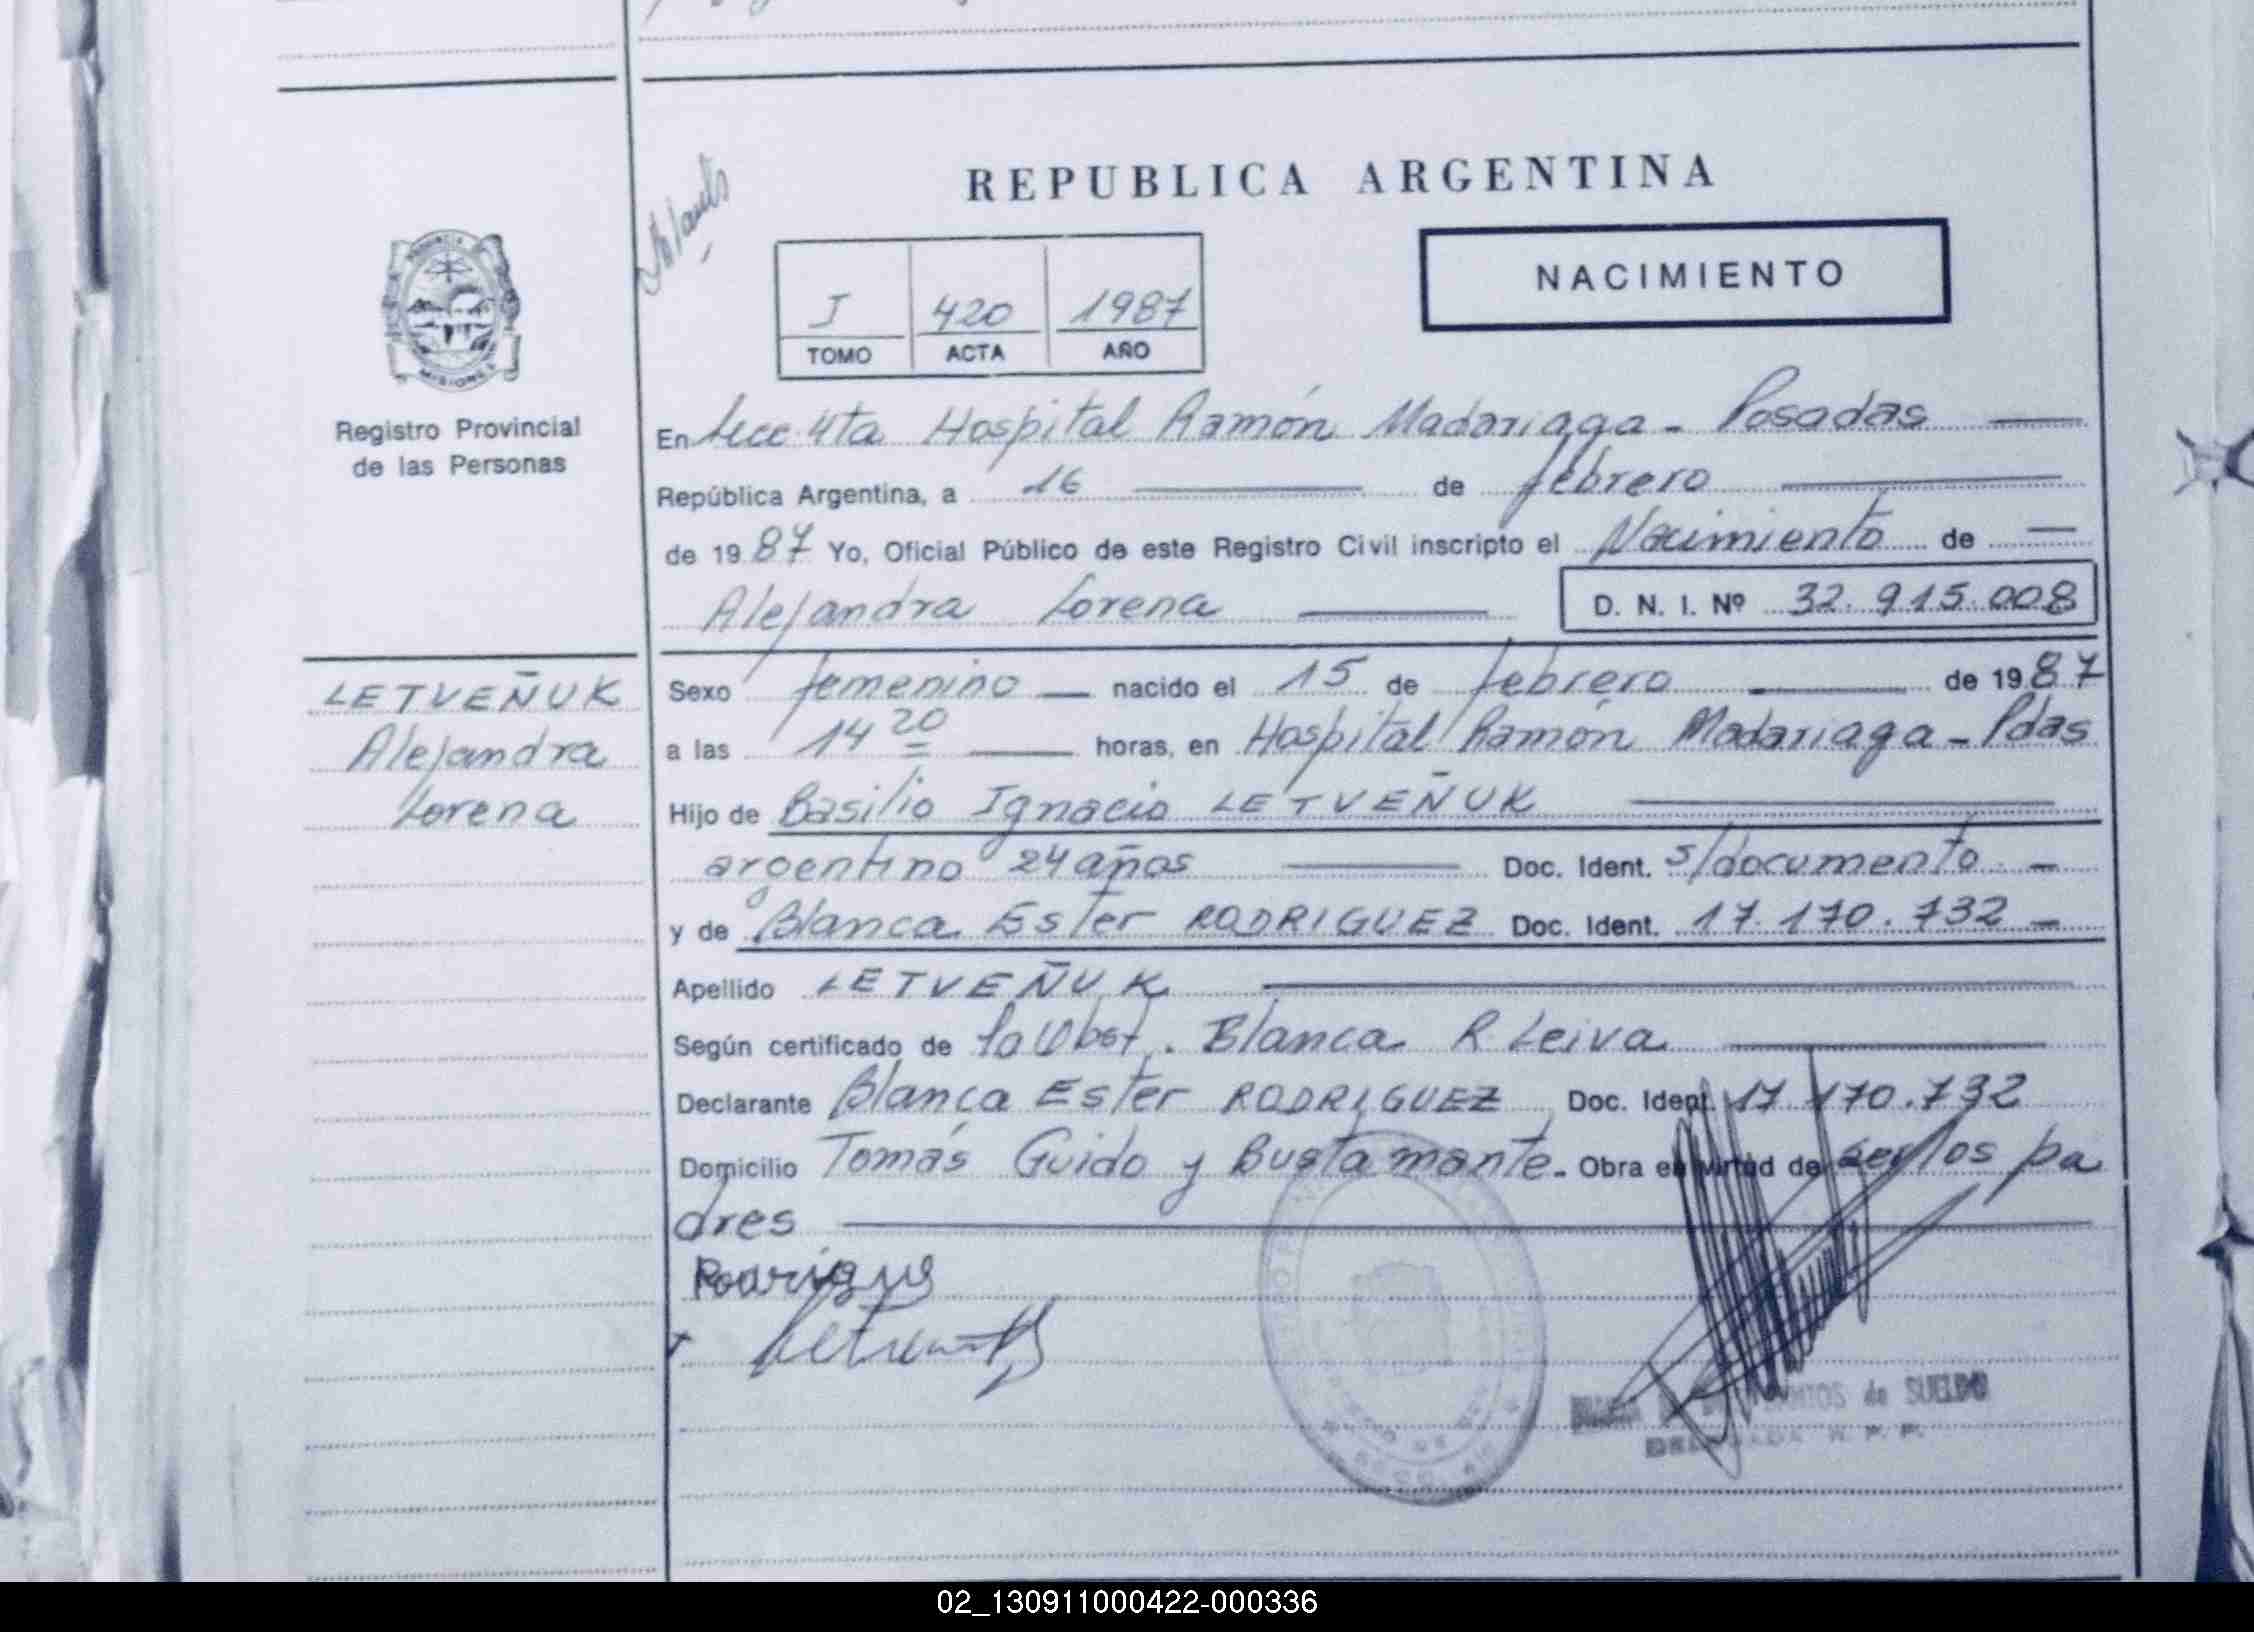 REPUBLICA ARGENTINA
NACIMIENTO
J 420 1987
TOMO ACTA AÑO
PROVINCIA
MISIONES
Registro Provincial
de las Personas
En Secc 4ta Hospital Ramón Madariaga - Posadas
República Argentina, a 16 de febrero
de 1987 Yo, Oficial Público de este Registro Civil inscripto el Nacimiento de
Alejandra Lorena D. N. I. Nº 32.915.008
LETVEÑUK
Alejandra
Lorena
Sexo femenino nacido el 15 de febrero de 1987
a las 14 20 horas, en Hospital Ramón Madariaga - Pdas
Hijo de Basilio Ignacio LETVEÑUK
argentino 24 años Doc. Ident. s/documento
y de Blanca Ester RODRIGUEZ Doc. Ident. 17.170.732
Apellido LETVEÑUK
Según certificado de la Obst. Blanca R Leiva
Declarante Blanca Ester RODRIGUEZ Doc. Ident. 17 170.732
Domicilio Tomás Guido y Bustamante - Obra en virtud de ser los pa
dres
de SUELDO
02_130911000422-000336